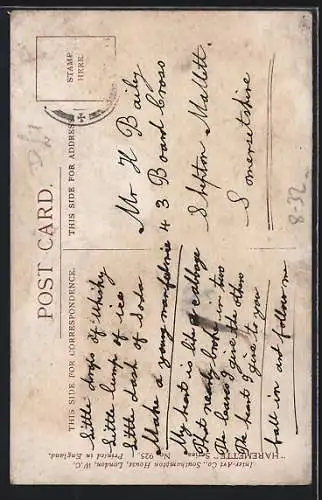 POST CARD.
THIS SIDE FOR CORRESPONDENCE.
THIS SIDE FOR ADDRESS
STAMP
HERE.
Little drops of Whisky
Little lump of ice
Little dash of Soda
Make a young man feel nice
My heart is like a cabbage
That nearly broke in two
The leaves I give the others
The heart I give to you
fall in and follow me
Mr H Baily
43 Board Cross
Shepton Mallett
Somersetshire
"HAREMETTE" Series, No. 925.
Inter-Art Co., Southampton House, London, W.C.
Printed in England.
8-32